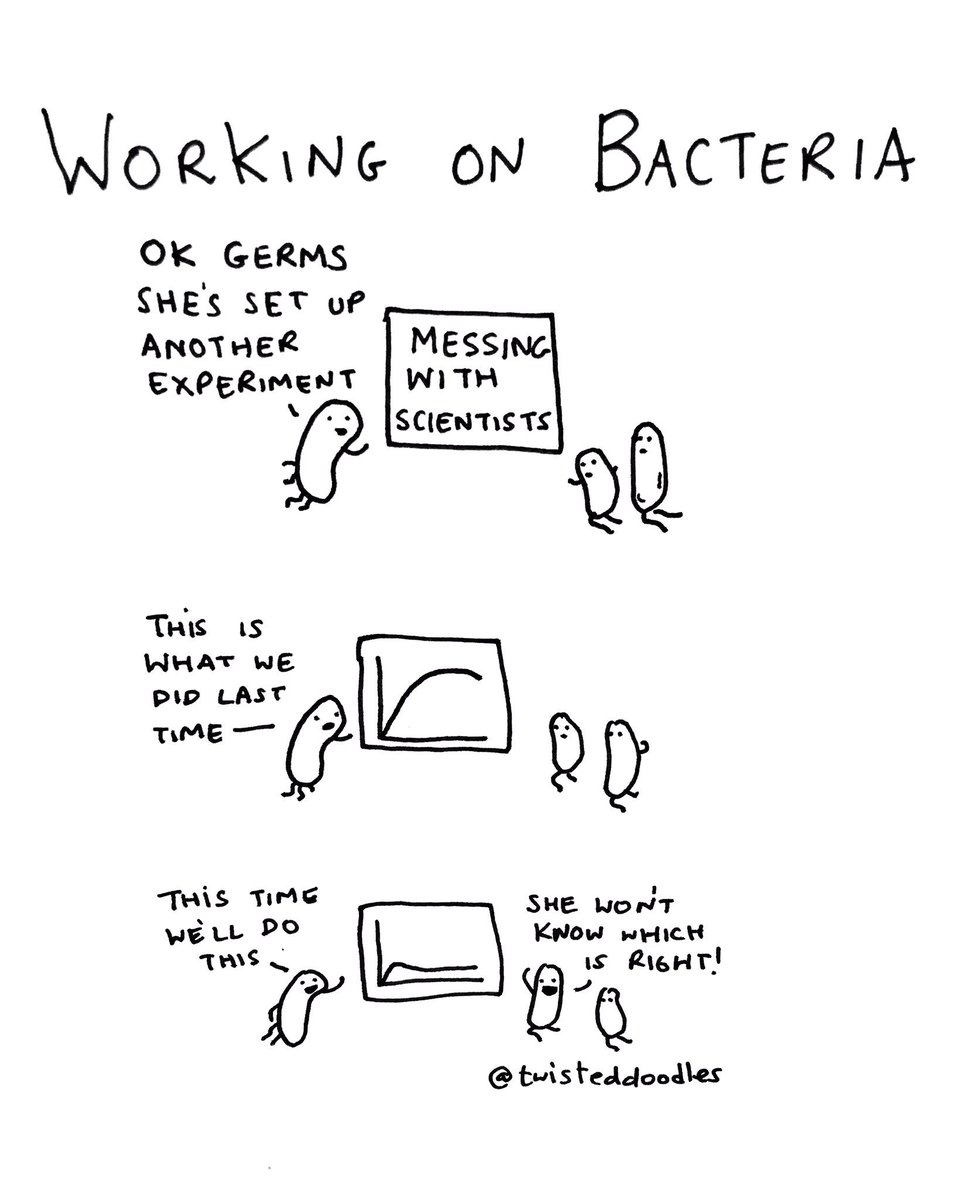 WORKING ON BACTERIA
OK GERMS
SHE'S SET UP
ANOTHER
EXPERIMENT
MESSING
WITH
SCIENTISTS
THIS IS
WHAT WE
DID LAST
TIME
THIS TIME
WE'LL DO
THIS
SHE WON'T
KNOW WHICH
IS RIGHT!
@twisteddoodles